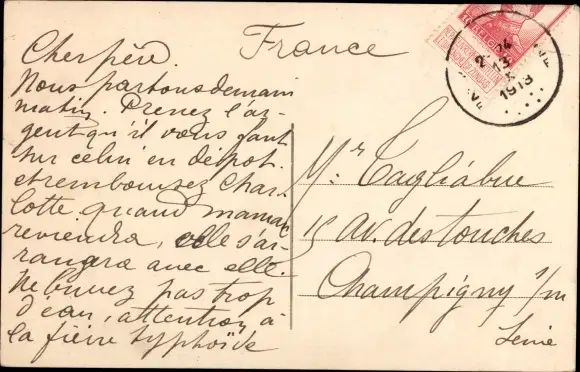 France
Cher père.
Nous partons demain
matin. Prenez l'ar-
gent qu'il vous faut
sur celui en dépot.
et remboursez Char-
lotte. quand maman
reviendra, elle s'ar-
rangra avec elle.
Ne buvez pas trop
d'eau, attention à
la fièvre typhoïde
Mr. Tagliabue
15 Av. destouches
Champigny s/m
Seine
1913